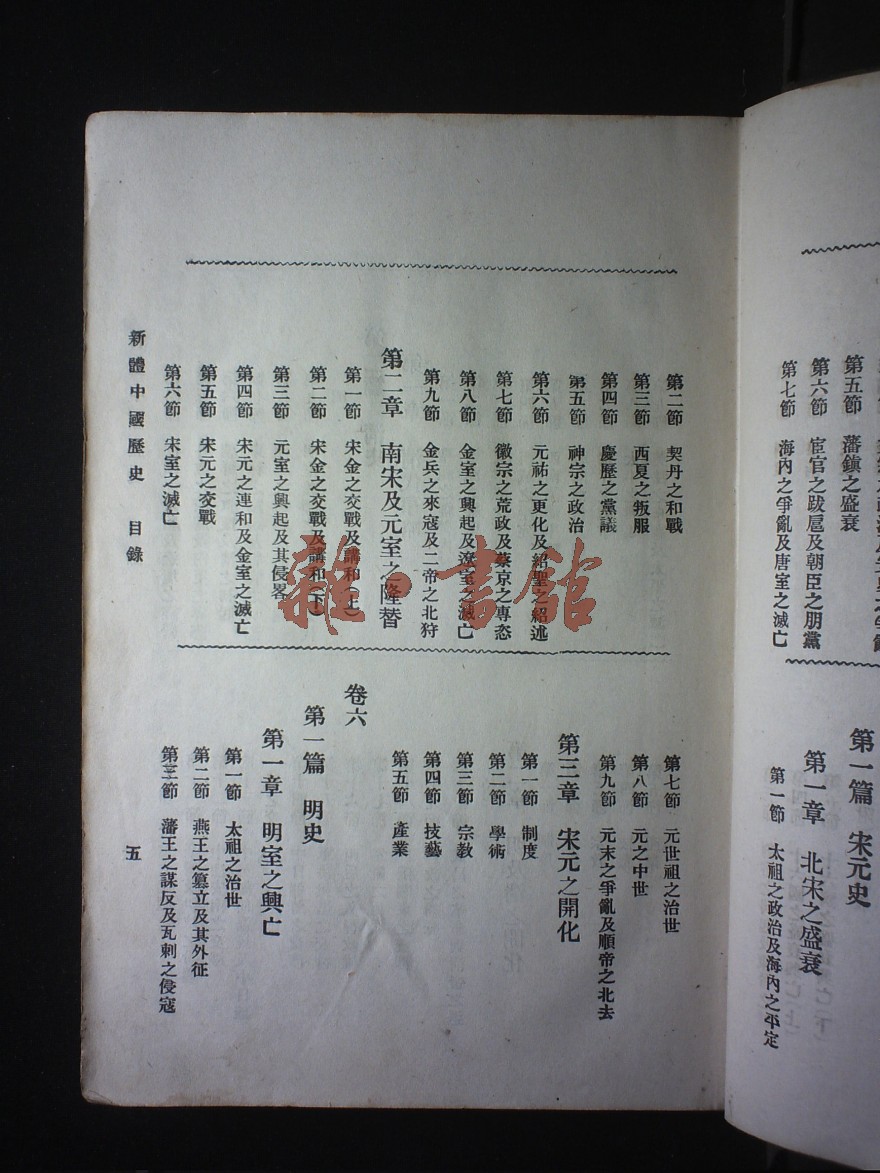 第五節　藩鎮之盛衰
第六節　宦官之跋扈及朝臣之朋黨
第七節　海內之爭亂及唐室之滅亡
第一篇　宋元史
第一章　北宋之盛衰
第一節　太祖之政治及海內之平定
第二節　契丹之和戰
第三節　西夏之叛服
第四節　慶歷之黨議
第五節　神宗之政治
第六節　元祐之更化及紹聖之紹述
第七節　徽宗之荒政及蔡京之專恣
第八節　金室之興起及遼室之滅亡
第九節　金兵之來寇及二帝之北狩
第二章　南宋及元室之隆替
第一節　宋金之交戰及講和（上）
第二節　宋金之交戰及講和（下）
第三節　元室之興起及其侵畧
第四節　宋元之連和及金室之滅亡
第五節　宋元之交戰
第六節　宋室之滅亡
第七節　元世祖之治世
第八節　元之中世
第九節　元末之爭亂及順帝之北去
第三章　宋元之開化
第一節　制度
第二節　學術
第三節　宗教
第四節　技藝
第五節　產業
卷六
第一篇　明史
第一章　明室之興亡
第一節　太祖之治世
第二節　燕王之篡立及其外征
第三節　藩王之謀反及瓦剌之侵寇
新體中國歷史　目錄
五
雜·書館